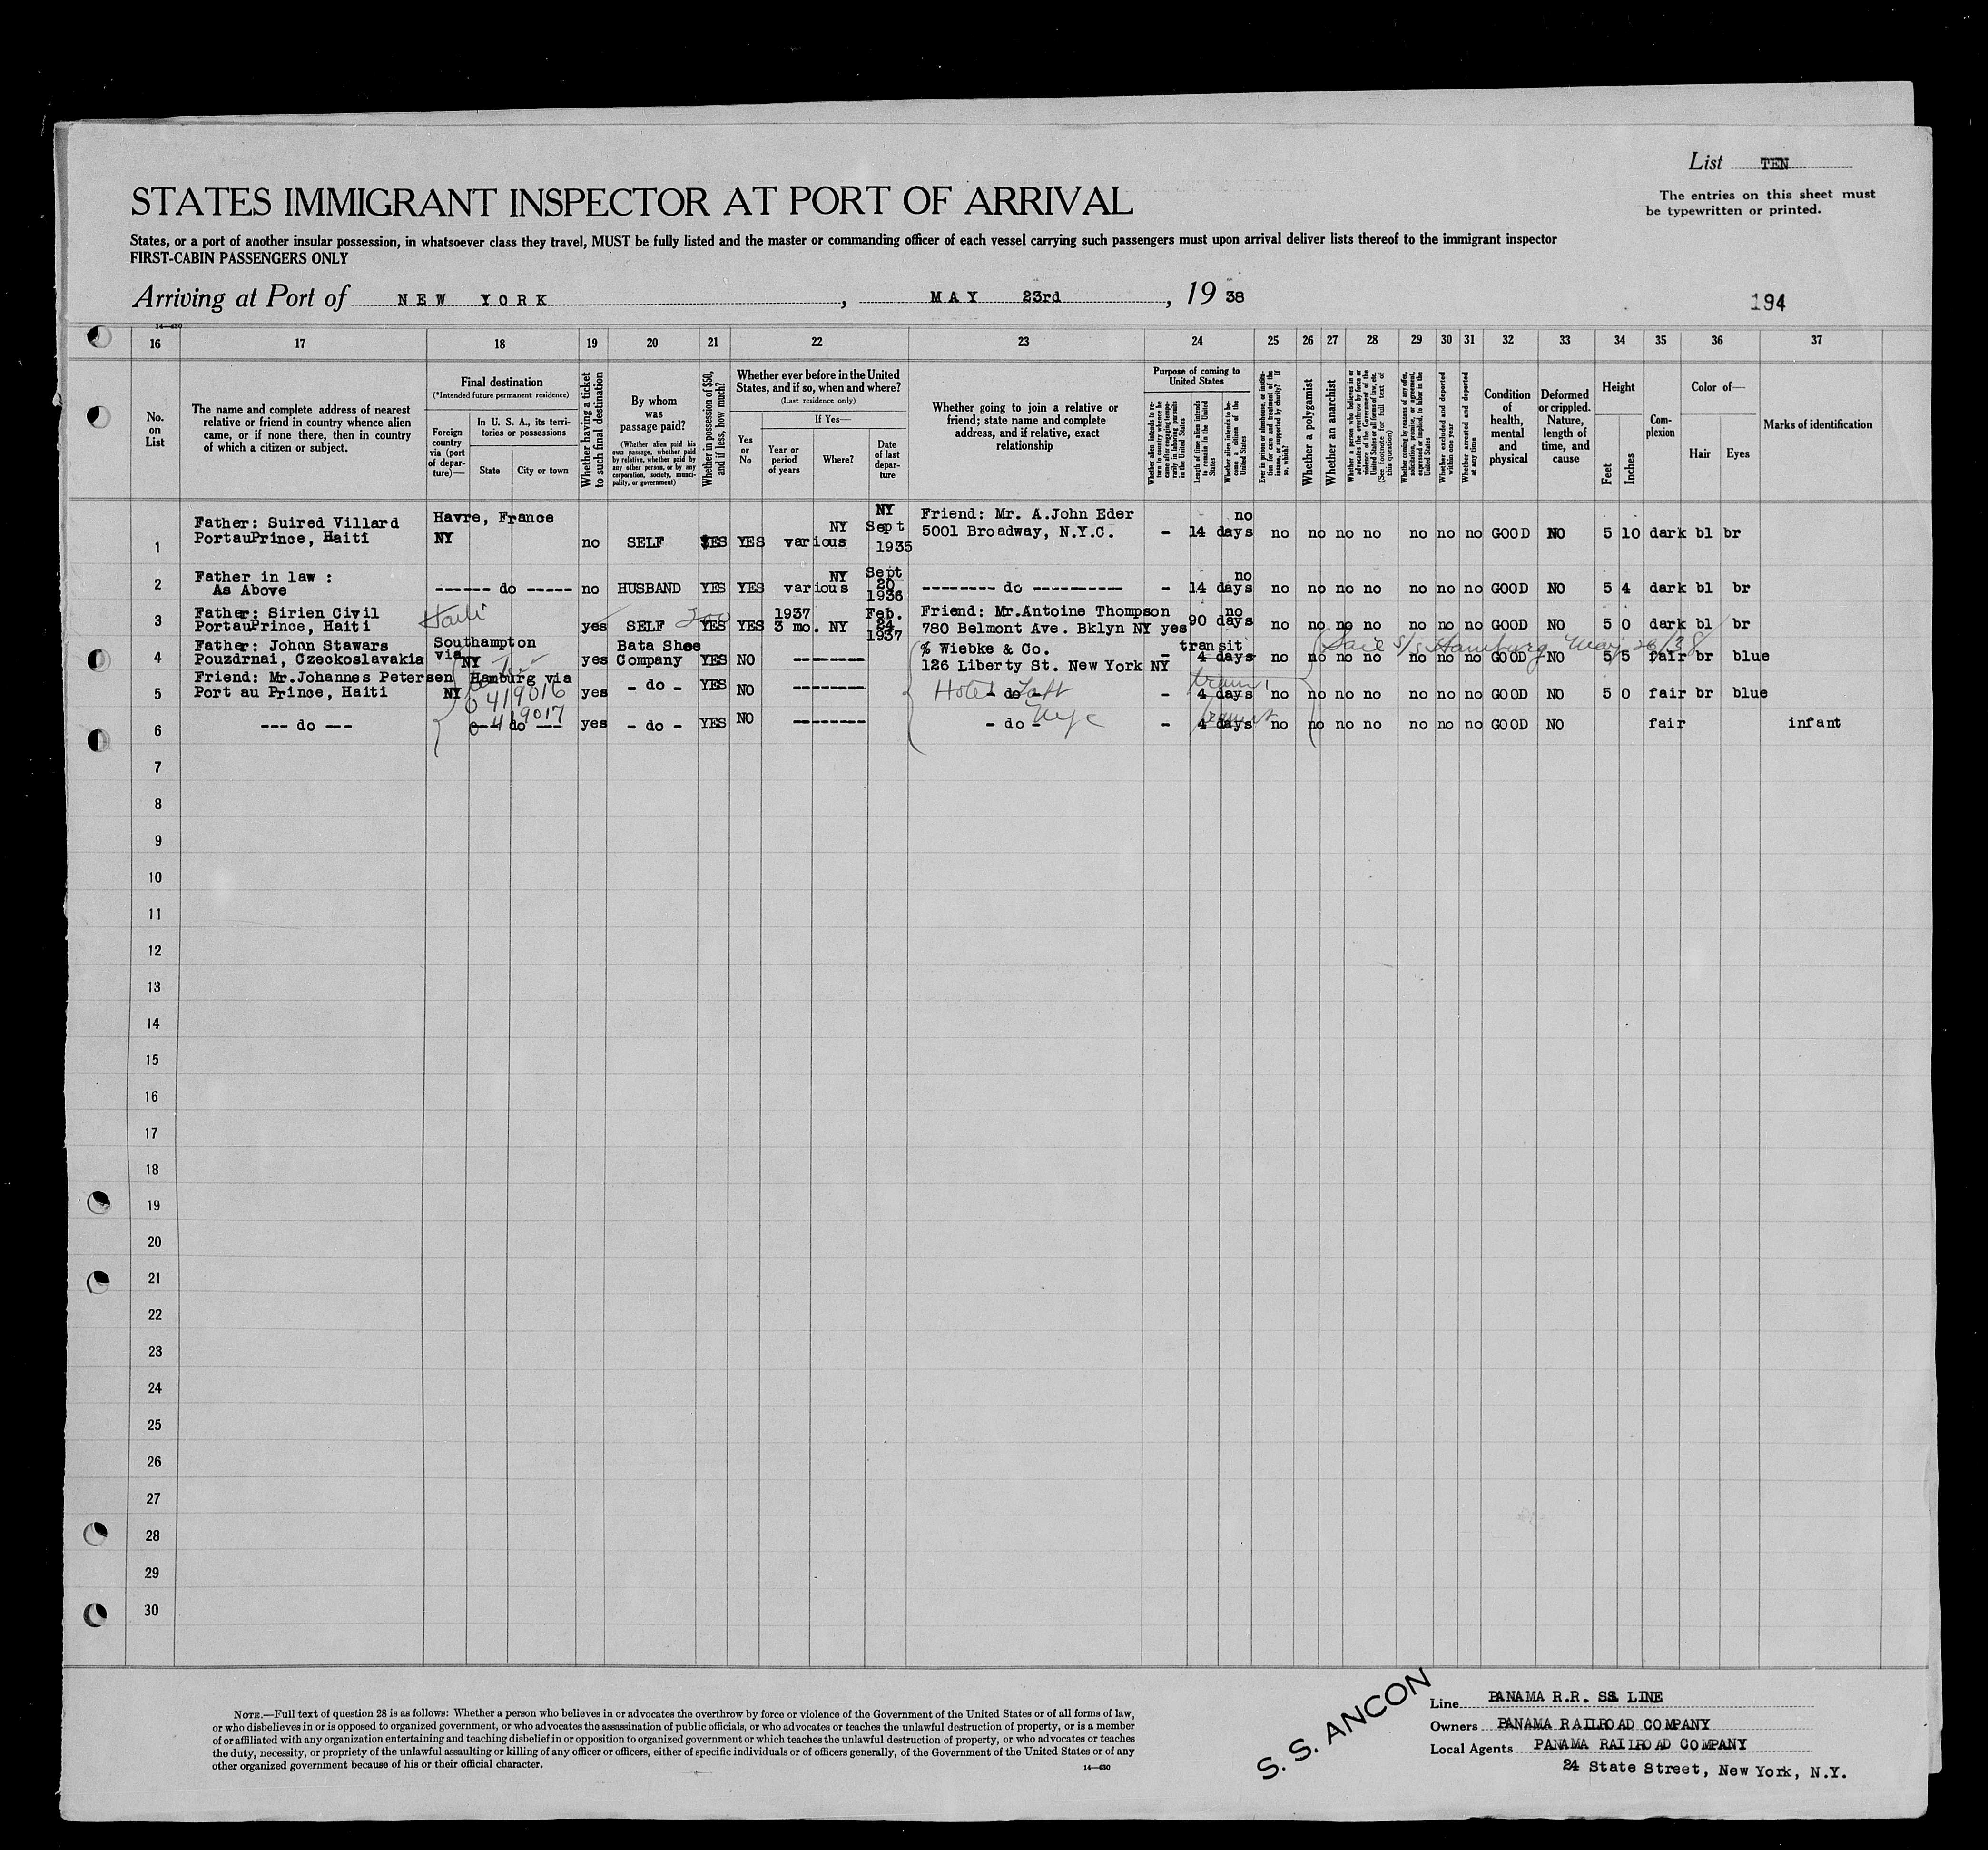 List TEN
The entries on this sheet must
be typewritten or printed.
STATES IMMIGRANT INSPECTOR AT PORT OF ARRIVAL
States, or a port of another insular possession, in whatsoever class they travel, MUST be fully listed and the master or commanding officer of each vessel carrying such passengers must upon arrival deliver lists thereof to the immigrant inspector
FIRST-CABIN PASSENGERS ONLY
Arriving at Port of NEW YORK, MAY 23rd, 19 38
194
14—430
16 17 18 19 20 21 22 23 24 25 26 27 28 29 30 31 32 33 34 35 36 37
No.
on
List
The name and complete address of nearest
relative or friend in country whence alien
came, or if none there, then in country
of which a citizen or subject.
Final destination
(*Intended future permanent residence)
Foreign
country
via (port
of depar-
ture)—
In U. S. A., its terri-
tories or possessions
State
City or town
Whether having a ticket
to such final destination
By whom
was
passage paid?
(Whether alien paid his
own passage, whether paid
by relative, whether paid by
any other person, or by any
corporation, society, munici-
pality, or government)
Whether in possession of $50,
and if less, how much?
Whether ever before in the United
States, and if so, when and where?
(Last residence only)
Yes
or
No
If Yes—
Year or
period
of years
Where?
Date
of last
depar-
ture
Whether going to join a relative or
friend; state name and complete
address, and if relative, exact
relationship
Purpose of coming to
United States
Whether alien intends to re-
turn to country whence he
came after engaging tempo-
rarily in laboring pursuits
in the United States
Length of time alien intends
to remain in the United
States
Whether alien intends to be-
come a citizen of the
United States
Ever in prison or almshouse, or institu-
tion for care and treatment of the
insane, or supported by charity? If
so, which?
Whether a polygamist
Whether an anarchist
Whether a person who believes in or
advocates the overthrow by force or
violence of the Government of the
United States or all forms of law, etc.
(See footnote for full text of
this question)
Whether coming by reasons of any offer,
solicitation, promise, or agreement,
expressed or implied, to labor in the
United States
Whether excluded and deported
within one year
Whether arrested and deported
at any time
Condition
of
health,
mental
and
physical
Deformed
or crippled.
Nature,
length of
time, and
cause
Height
Feet
Inches
Com-
plexion
Color of—
Hair
Eyes
Marks of identification
1 Father: Suired Villard
PortauPrince, Haiti
Havre, France
NY
no SELF YES YES various NY
NY
Sept
1935
Friend: Mr. A.John Eder
5001 Broadway, N.Y.C.
- 14 days no no no no no no no no no GOOD NO 5 10 dark bl br
2 Father in law :
As Above
------ do ----- no HUSBAND YES YES various NY
Sept
20
1936
-------- do ----------
- 14 days no no no no no no no no no GOOD NO 5 4 dark bl br
3 Father: Sirien Civil
PortauPrince, Haiti
Haiti
yes SELF 200 YES YES
1937
3 mo. NY
Feb.
24
1937
Friend: Mr.Antoine Thompson
780 Belmont Ave. Bklyn NY
yes 90 days no no no no no no no no no GOOD NO 5 0 dark bl br
4 Father: Johan Stawars
Pouzdrnai, Czeckoslavakia
Southampton
via NY
yes Bata Shoe
Company
YES NO --------
% Wiebke & Co.
126 Liberty St. New York NY
transit
- 4 days no no no no no no no no GOOD NO 5 5 fair br blue
Sail S/s Hamburg May 26/38
5 Friend: Mr.Johannes Petersen
Port au Prince, Haiti
Hamburg via
NY
0 419016
yes - do - YES NO --------
- do -
Hotel Taft
NYC
- 4 days transit no no no no no no no no GOOD NO 5 0 fair br blue
6 --- do ---
--- do ---
0-419017
yes - do - YES NO --------
- do -
- 4 days transit no no no no no no no no GOOD NO fair infant
7
8
9
10
11
12
13
14
15
16
17
18
19
20
21
22
23
24
25
26
27
28
29
30
NOTE.—Full text of question 28 is as follows: Whether a person who believes in or advocates the overthrow by force or violence of the Government of the United States or of all forms of law,
or who disbelieves in or is opposed to organized government, or who advocates the assassination of public officials, or who advocates or teaches the unlawful destruction of property, or is a member
of or affiliated with any organization entertaining and teaching disbelief in or opposition to organized government or which teaches the unlawful destruction of property, or who advocates or teaches
the duty, necessity, or propriety of the unlawful assaulting or killing of any officer or officers, either of specific individuals or of officers generally, of the Government of the United States or of any
other organized government because of his or their official character.
14—430
S. S. ANCON
Line PANAMA R.R. SS. LINE
Owners PANAMA RAILROAD COMPANY
Local Agents PANAMA RAILROAD COMPANY
24 State Street, New York, N.Y.